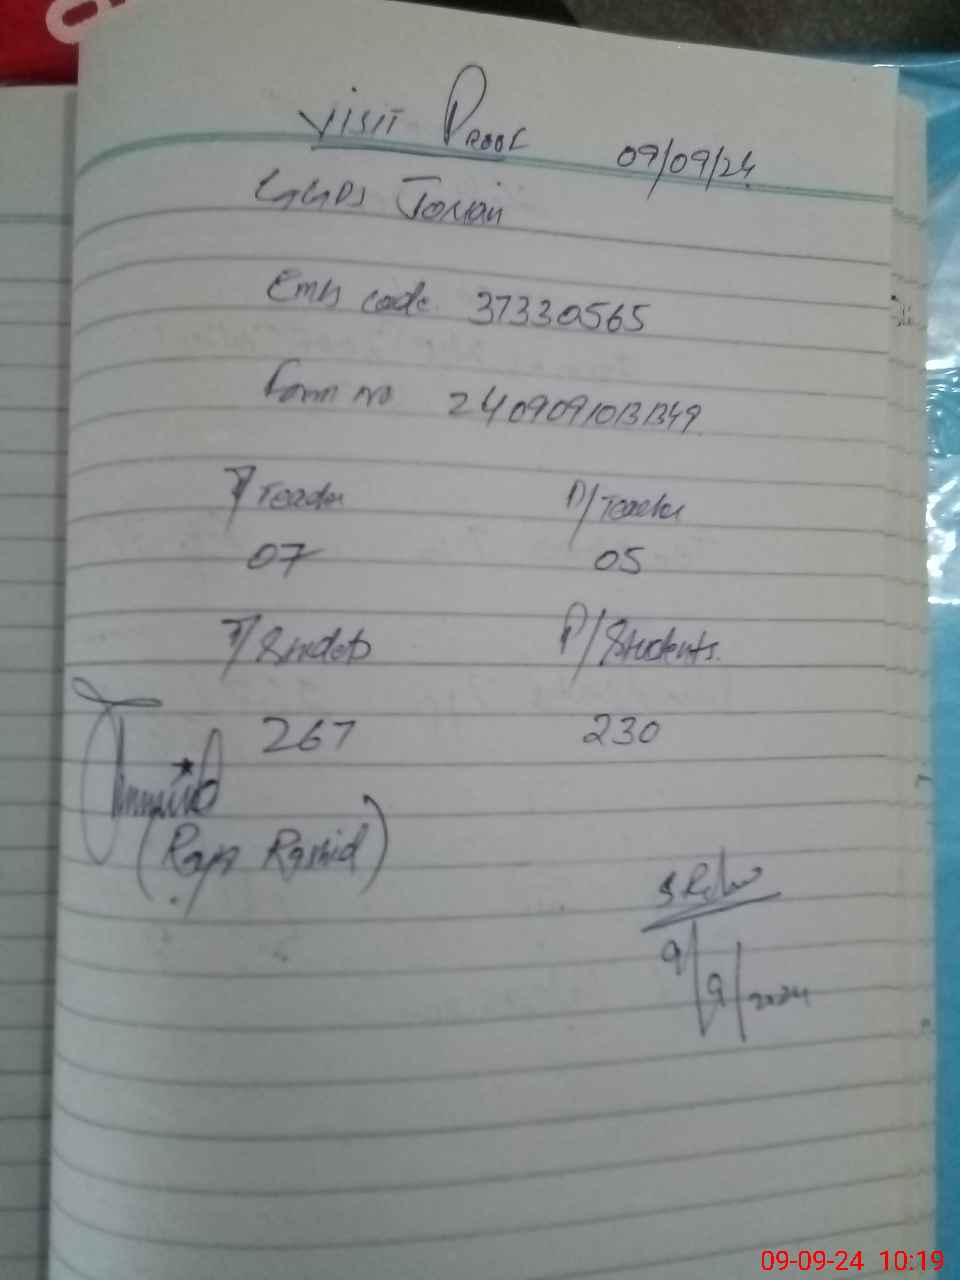 Visit Proof 09/09/24
GGPS
Emis code 37330565
Form no 24090910131349
T/Teacher P/Teacher
07 05
T/Students P/Students.
267 230
(Raja Rashid)
9/9/2024
09-09-24 10:19